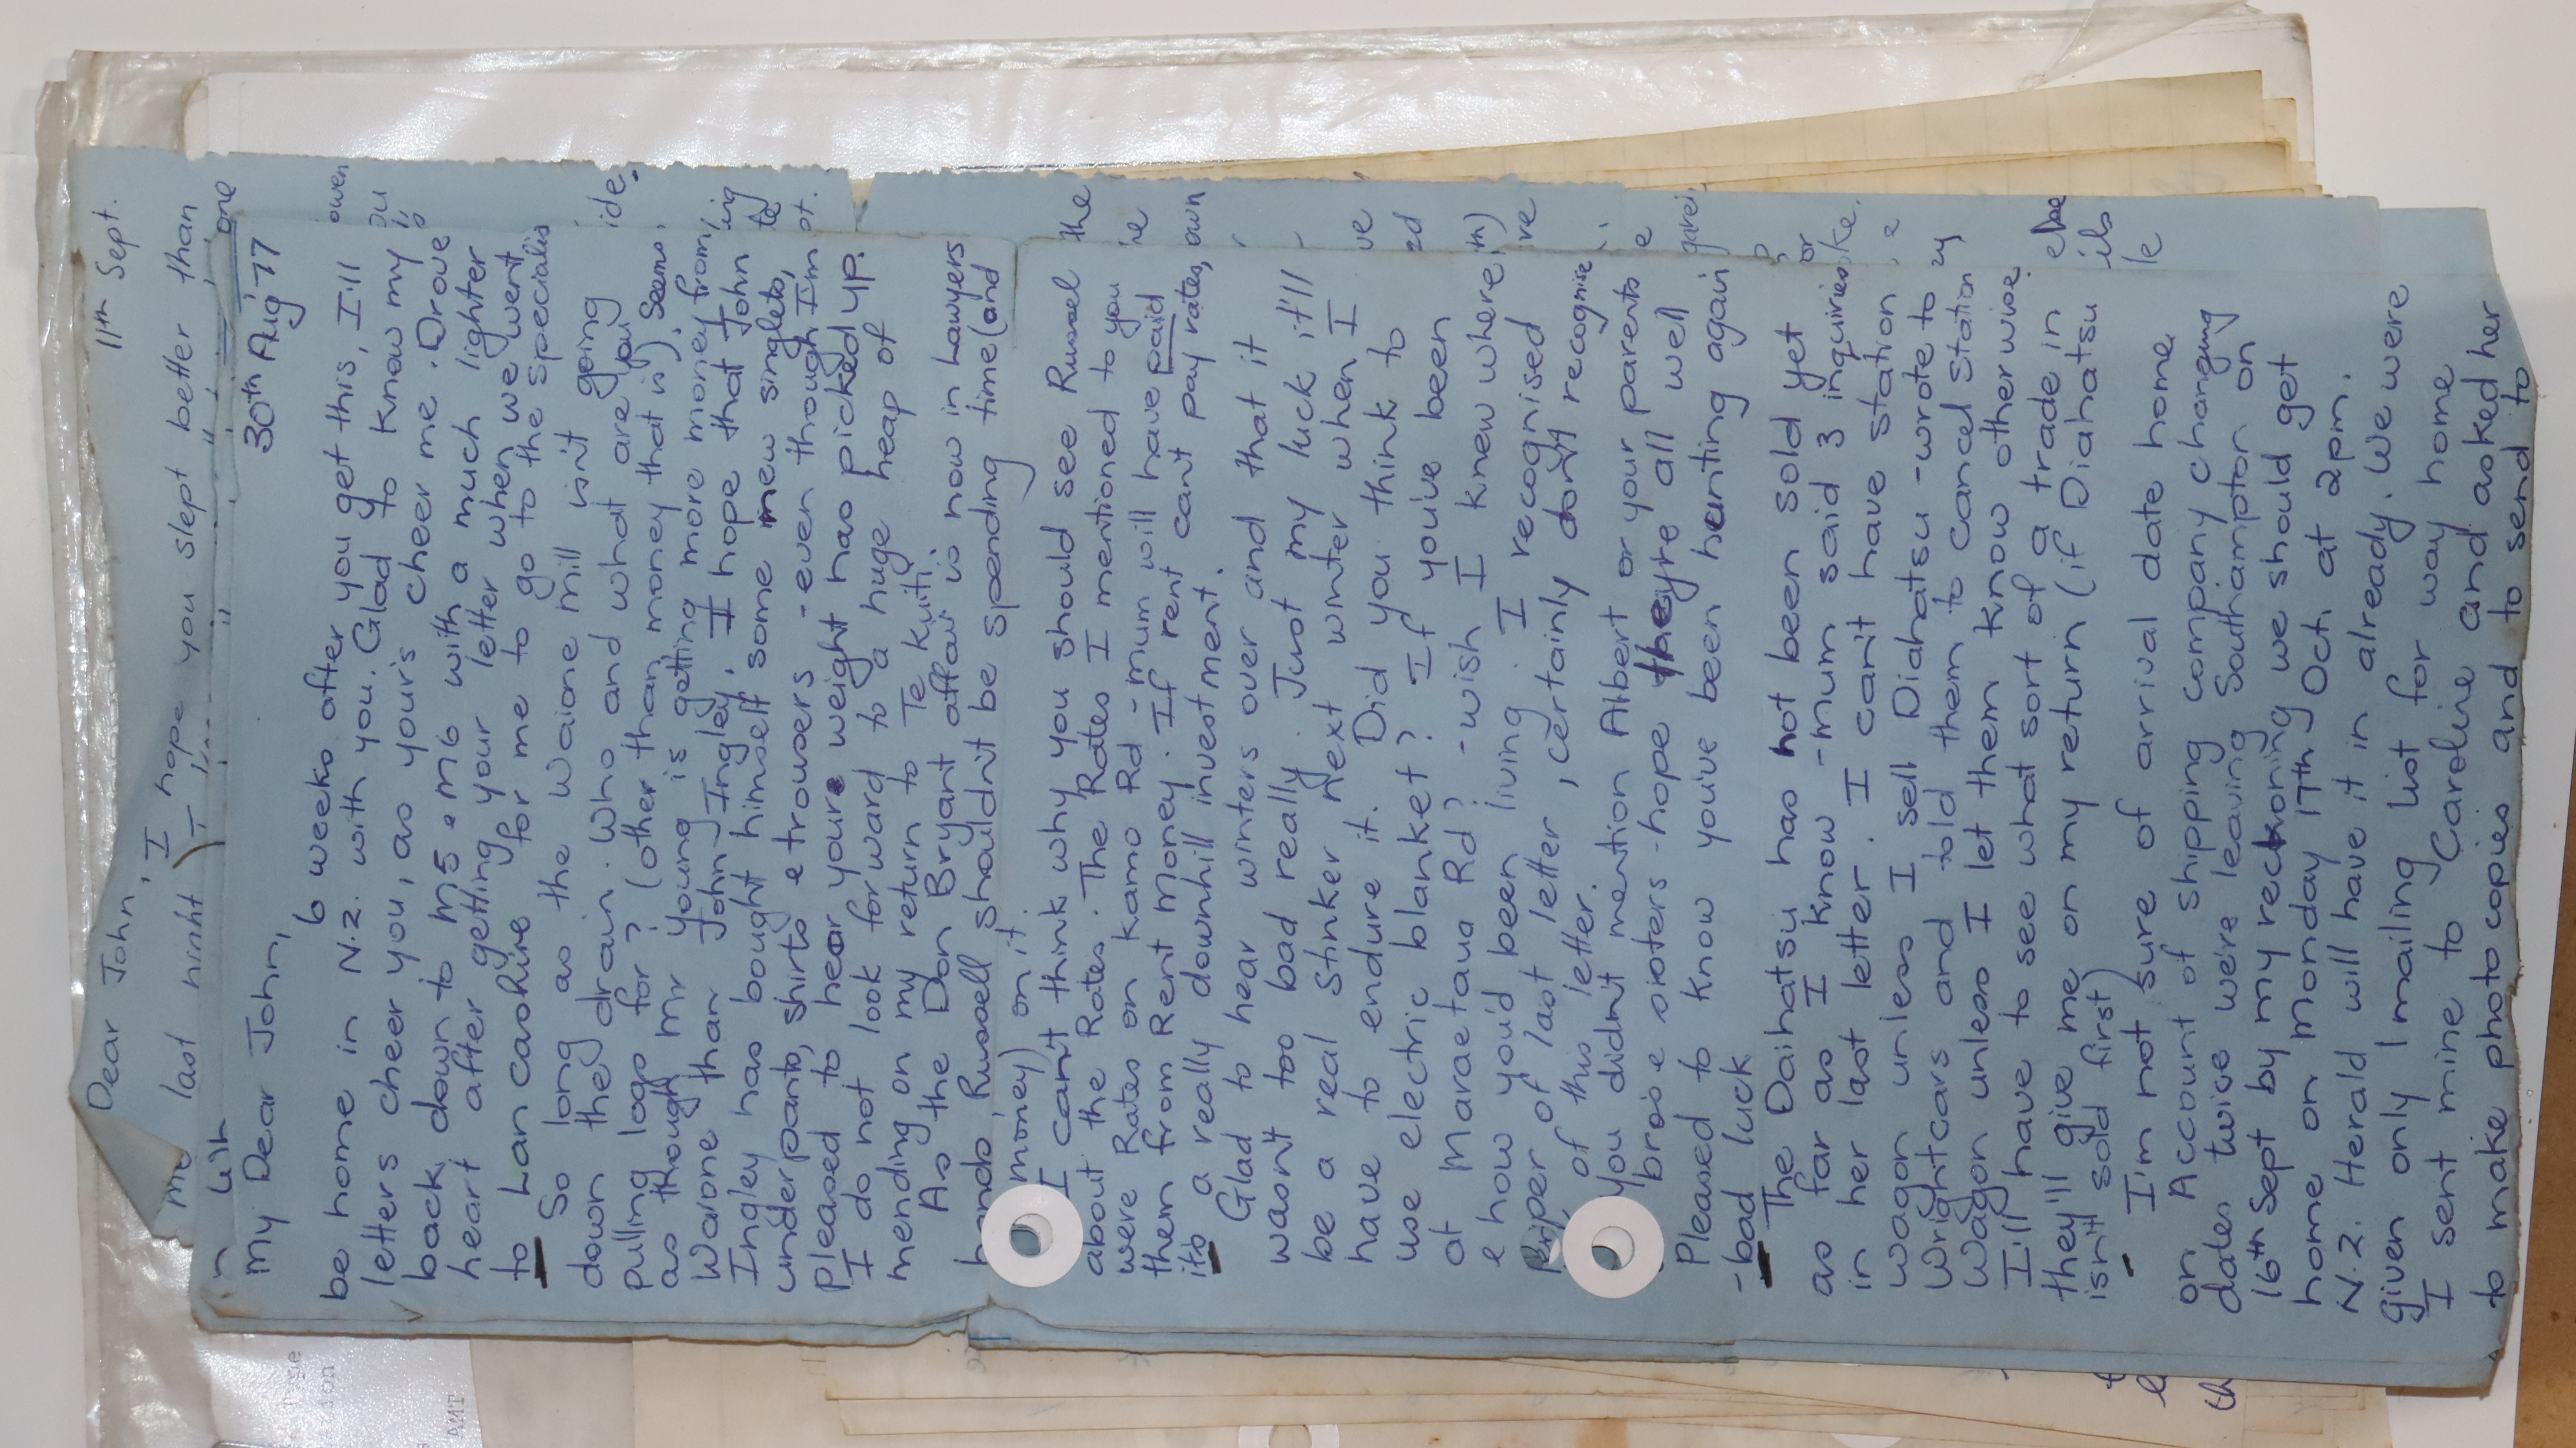 11th Sept.
Dear John,
I hope you slept better than
me last night
My Dear John,
30th Aug '77
6 weeks after you get this, I'll
be home in N.Z. with you. Glad to know my
letters cheer you, as your's cheer me. Drove
back down to M5 & M6 with a much lighter
heart after getting your letter when we went
to Lancashire for me to go to the specialis
So long as the Waione mill isn't going
down the drain. Who and what are you
pulling logs for? (other than money that is). Seems
as though Mr Young is getting more money from
Waione than John Ingley. I hope that John
Ingley has bought himself some new singlets,
underpants, shirts & trousers - even though I'm
pleased to hear your weight has picked up.
I do not look forward to a huge heap of
mending on my return to Te Kuiti.
As the Don Bryant affair is now in Lawyers
hands Russell shouldn't be spending time (and
money) on it.
I can't think why you should see Russel
about the Rates. The Rates I mentioned to you
were Rates on Kamo Rd - mum will have paid
them from Rent Money. If rent cant pay rates,
its a really downhill investment.
Glad to hear winters over and that it
wasn't too bad really. Just my luck it'll
be a real stinker next winter when I
have to endure it. Did you think to
use electric blanket? If you've been
at Maraetaua Rd? - wish I knew where
& how you'd been living. I recognised
paper of last letter, certainly don't recognise
of this letter.
You didn't mention Albert or your parents
bros & sisters - hope theyre all well
Pleased to know you've been hunting again
- bad luck
The Daihatsu has not been sold yet
as far as I know - mum said 3 inquiries
in her last letter. I can't have station
wagon unless I sell Diahatsu - wrote to
Wrightcars and told them to cancel station
wagon unless I let them know otherwise.
I'll have to see what sort of a trade in
they'll give me on my return (if Diahatsu
isn't sold first)
I'm not sure of arrival date home.
on Account of shipping company changing
dates twice we're leaving Southampton on
16th Sept by my reckoning we should get
home on Monday 17th Oct. at 2pm.
N.Z. Herald will have it in already. We were
given only 1 mailing list for way home
I sent mine to Caroline and asked her
to make photocopies and to send to